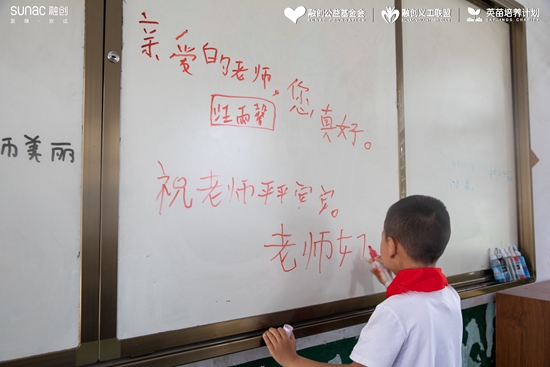 sunac 融创
融创公益基金会
融创义工联盟
英苗培养计划
亲爱的老师,您真好。
汪雨馨
师美丽
祝老师平平安安。
老师好